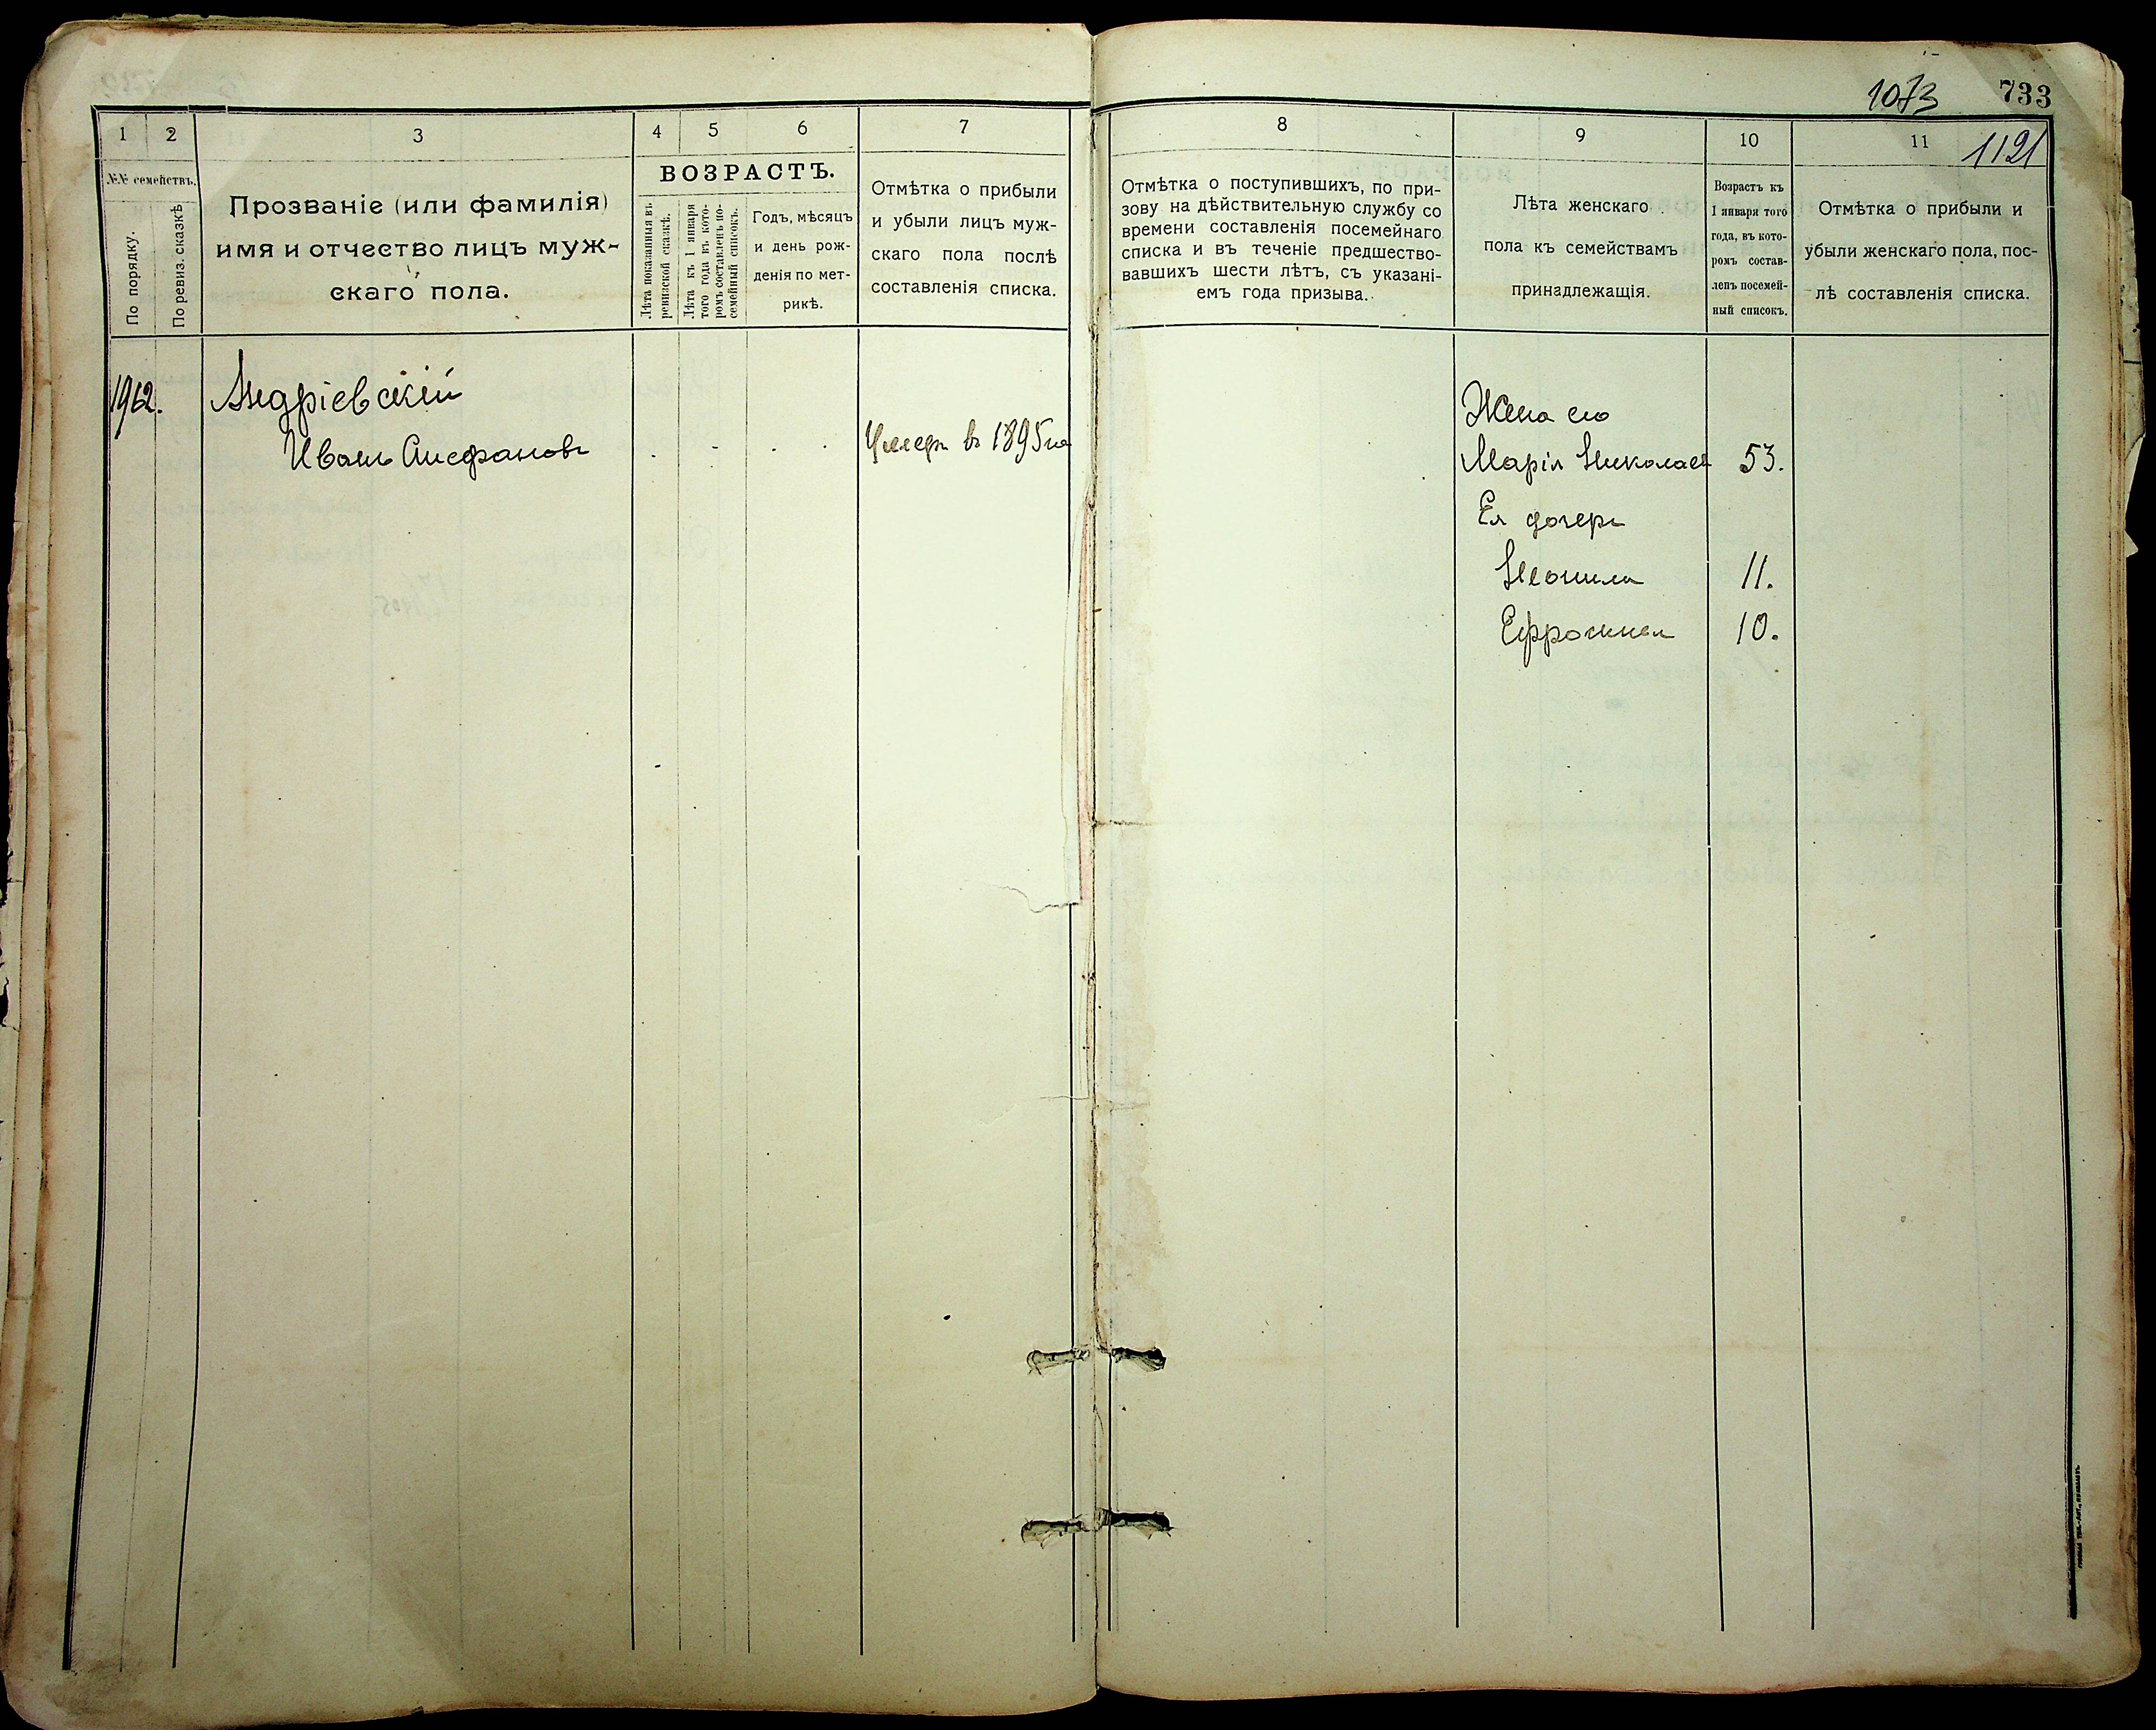 1073 733
1121
1
2
3
4
5
6
7
№№ семействъ.
По порядку.
По ревиз. сказкѣ
Прозваніе (или фамилія)
имя и отчество лицъ муж-
скаго пола.
ВОЗРАСТЪ.
Лѣта показанныя въ
ревизской сказкѣ.
Лѣта къ 1 января
того года въ кото-
ромъ составленъ по-
семейный списокъ.
Годъ, мѣсяцъ
и день рож-
денія по мет-
рикѣ.
Отмѣтка о прибыли
и убыли лицъ муж-
скаго пола послѣ
составленія списка.
8
9
10
11
Отмѣтка о поступившихъ, по при-
зову на дѣйствительную службу со
времени составленія посемейнаго
списка и въ теченіе предшество-
вавшихъ шести лѣтъ, съ указані-
емъ года призыва.
Лѣта женскаго
пола къ семействамъ
принадлежащія.
Возрастъ къ
1 января того
года, въ кото-
ромъ состав-
ленъ посемей-
ный списокъ.
Отмѣтка о прибыли и
убыли женскаго пола, пос-
лѣ составленія списка.
1962. Андріевскій
Иванъ
Умеръ въ 1895
Жена его
Марія Николаев 53.
Ея дочери
11.
Ефросинія 10.